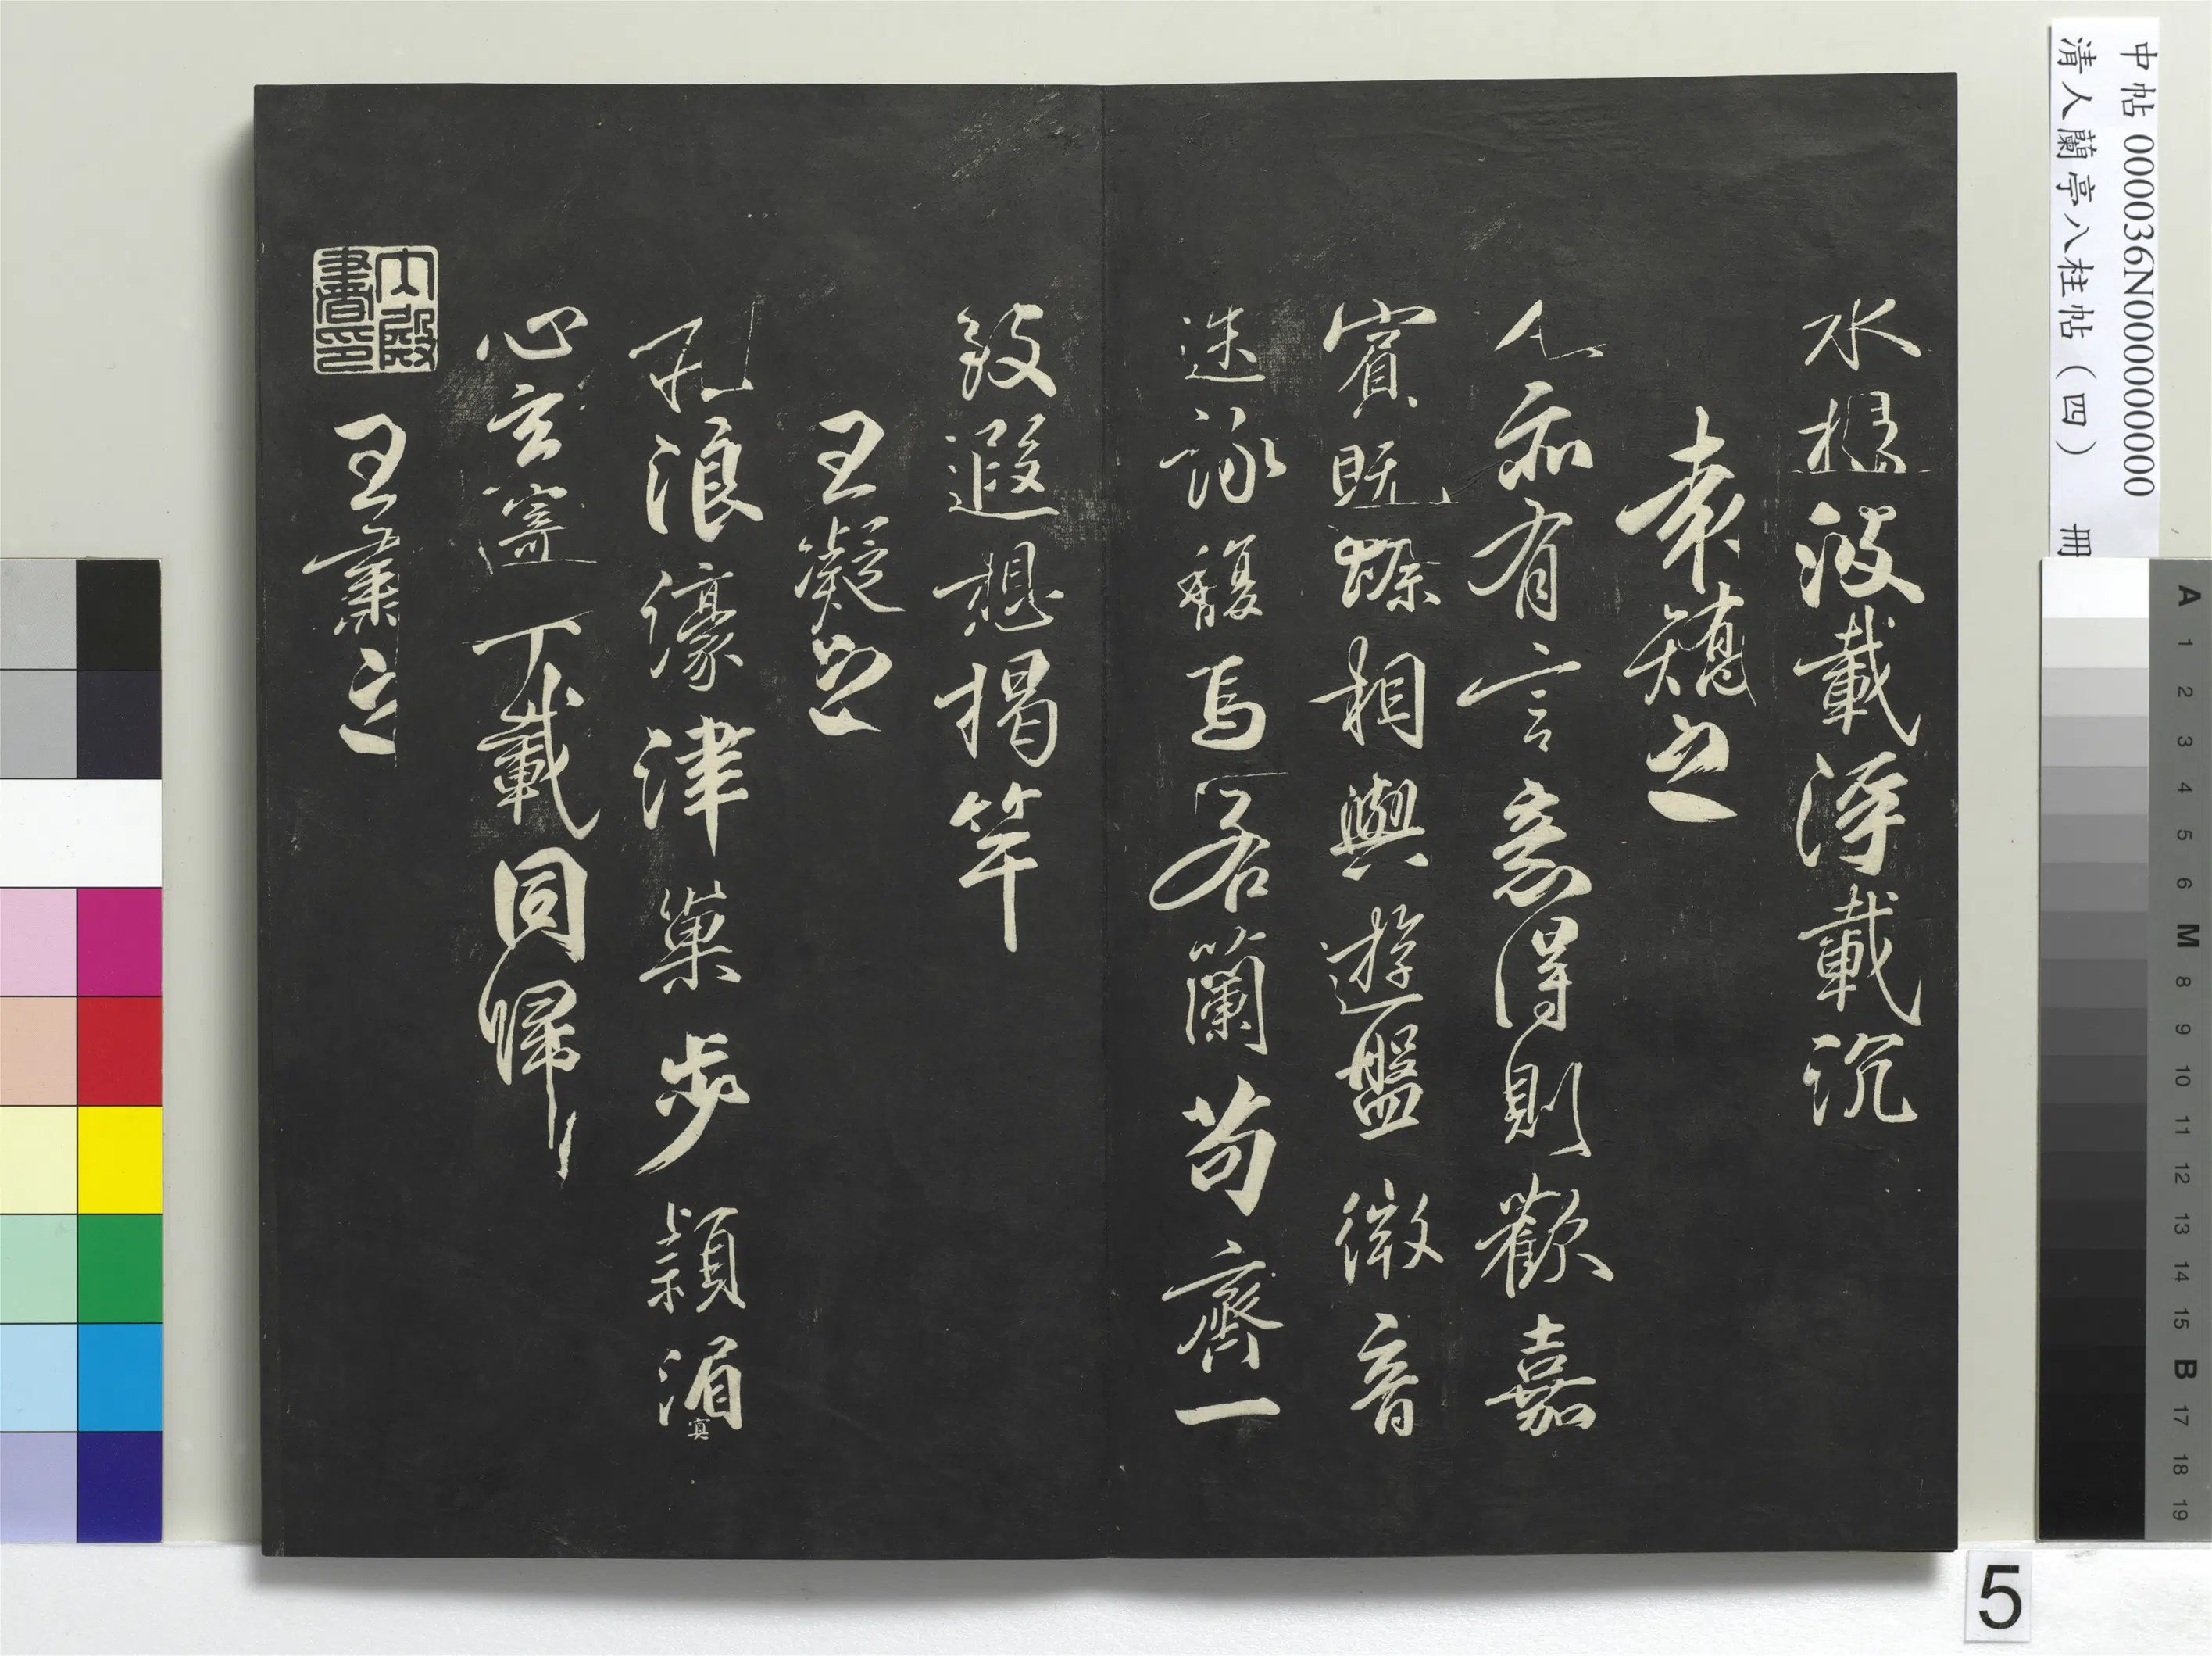 水揚波載浮載沉
袁矯之
人亦有言意得則歡嘉
賓既臻相與遊盤微音
迭詠馥焉若蘭苟齊一
致遐想揭竿
王凝之
莊浪濠津巢步潁湄
寘
心玄寄千載同歸
王肅之
内殿書印
中帖 000036N000000000
清人蘭亭八柱帖(四) 冊
A 1 2 3 4 5 6 M 8 9 10 11 12 13 14 15 B 17 18 19
5